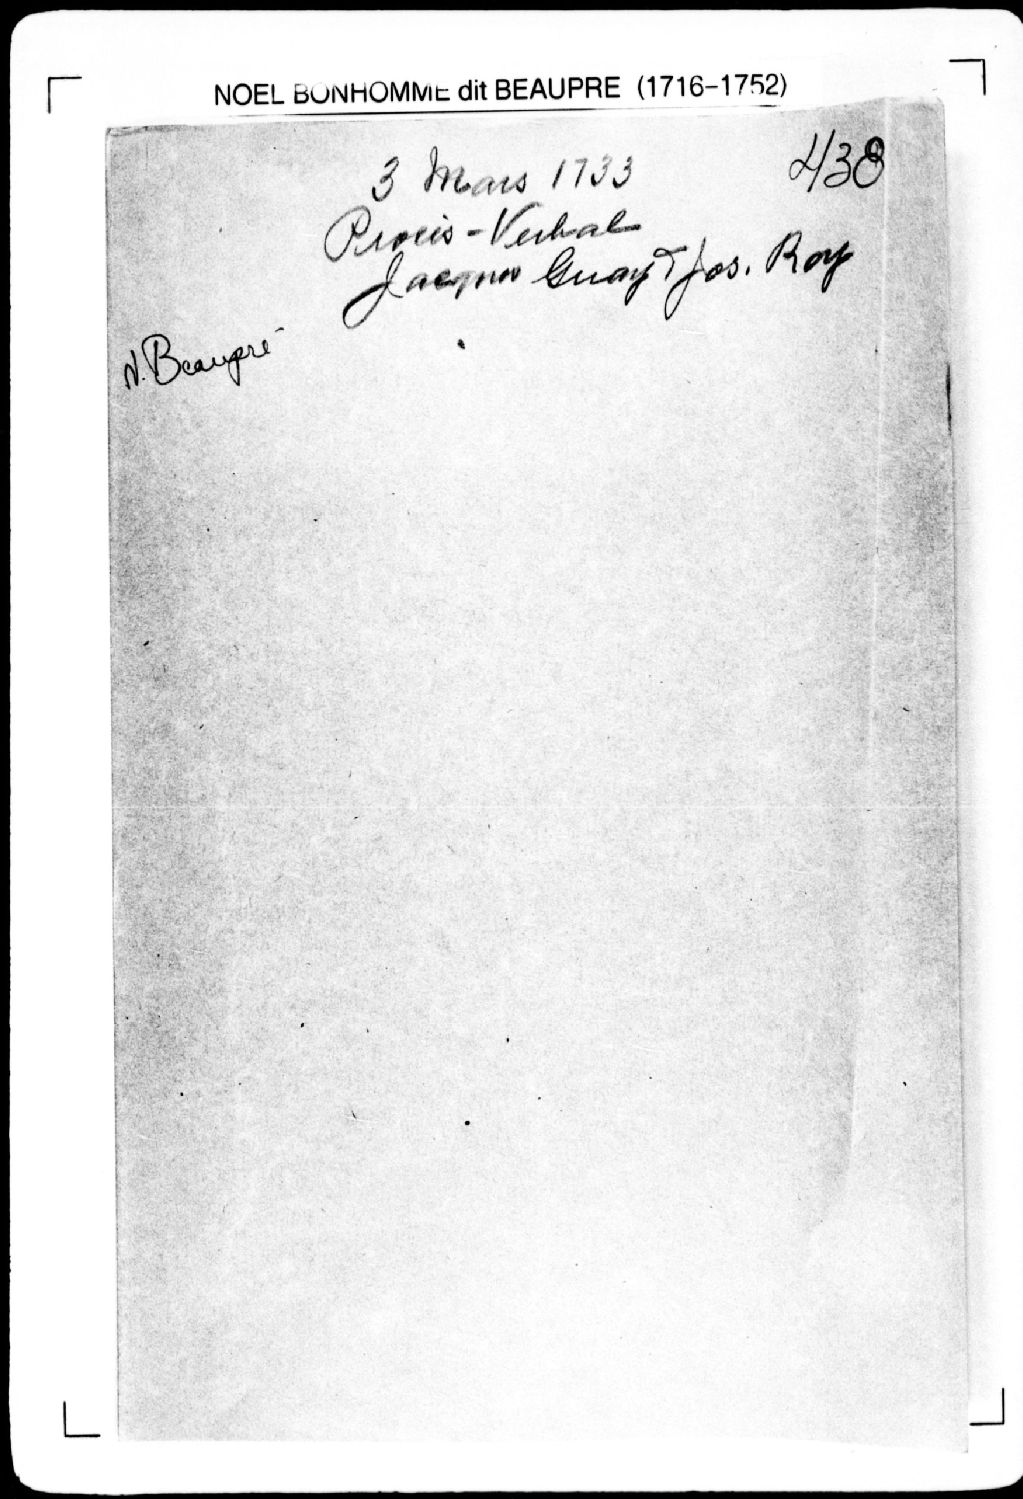 NOEL BONHOMME dit BEAUPRE (1716-1752)
438
3 Mars 1733
Procès-Verbal
Jacques Guay & Jos. Roy
N. Beaupré